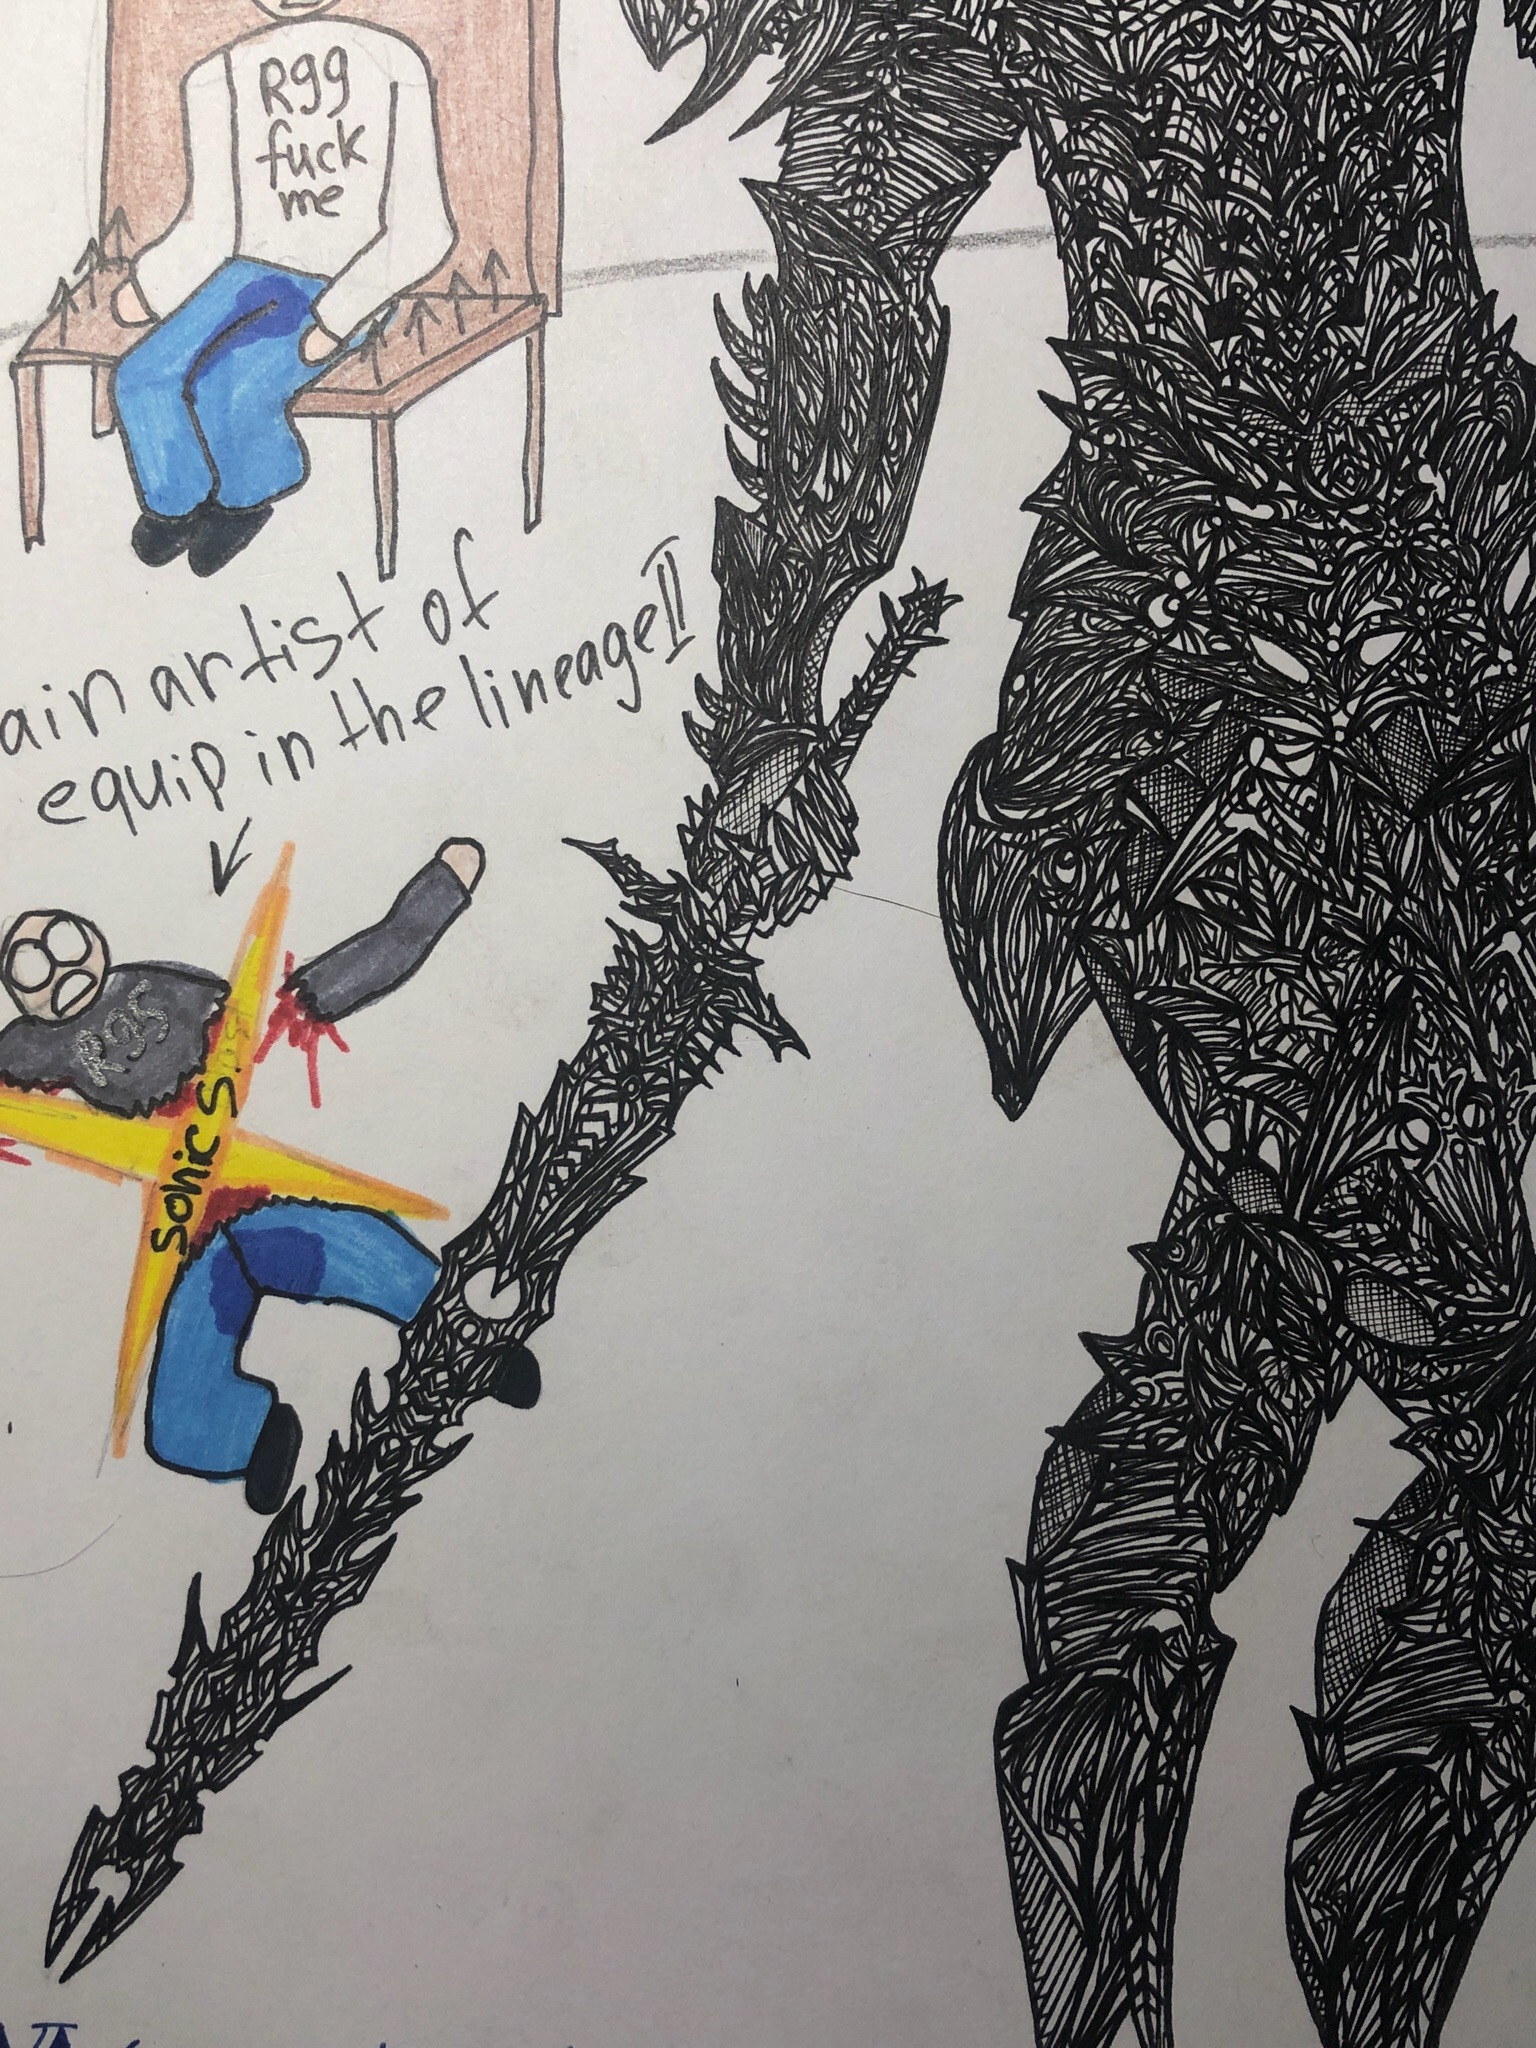 Rgg
fuck
me
ain artist of
equip in the lineage II
Rgs
Sonic S